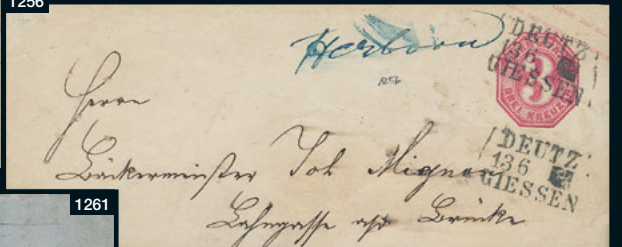 1256
Herborn
DEUTZ
13 6
GIESSEN
3
DREI KREUZER
Herrn
DEUTZ
13 6
GIESSEN
Bäckermeister Joh Mignon
Lahngasse Brücke
1261